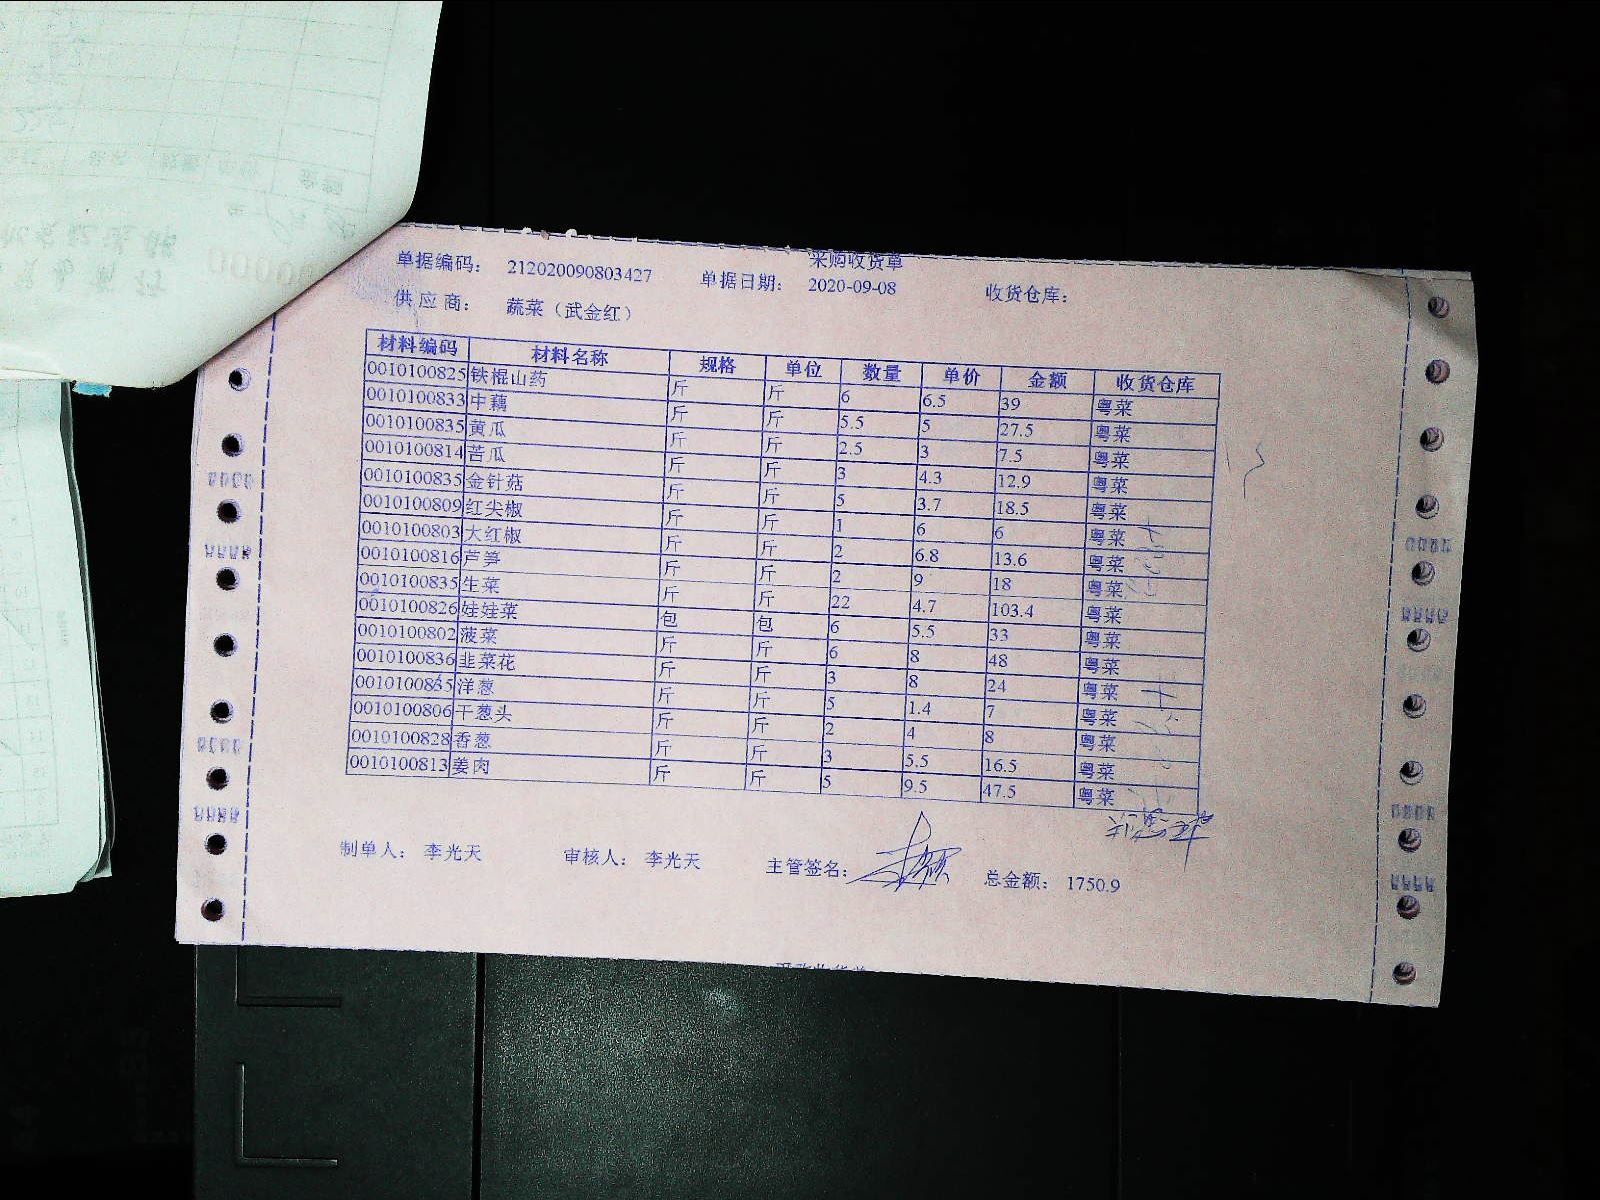 采购收货单
单据编码: 212020090803427 单据日期: 2020-09-08 收货仓库:
供应商: 蔬菜（武金红）
材料编码 材料名称 规格 单位 数量 单价 金额 收货仓库
0010100825 铁棍山药 斤 斤 6 6.5 39 粤菜
0010100833 中藕 斤 斤 5.5 5 27.5 粤菜
0010100835 黄瓜 斤 斤 2.5 3 7.5 粤菜
0010100814 苦瓜 斤 斤 3 4.3 12.9 粤菜
0010100835 金针菇 斤 斤 5 3.7 18.5 粤菜
0010100809 红尖椒 斤 斤 1 6 6 粤菜
0010100803 大红椒 斤 斤 2 6.8 13.6 粤菜
0010100816 芦笋 斤 斤 2 9 18 粤菜
0010100835 生菜 斤 斤 22 4.7 103.4 粤菜
0010100826 娃娃菜 包 包 6 5.5 33 粤菜
0010100802 菠菜 斤 斤 6 8 48 粤菜
0010100836 韭菜花 斤 斤 3 8 24 粤菜
0010100835 洋葱 斤 斤 5 1.4 7 粤菜
0010100806 干葱头 斤 斤 2 4 8 粤菜
0010100828 香葱 斤 斤 3 5.5 16.5 粤菜
0010100813 姜肉 斤 斤 5 9.5 47.5 粤菜
制单人: 李光天 审核人: 李光天 主管签名: 总金额: 1750.9